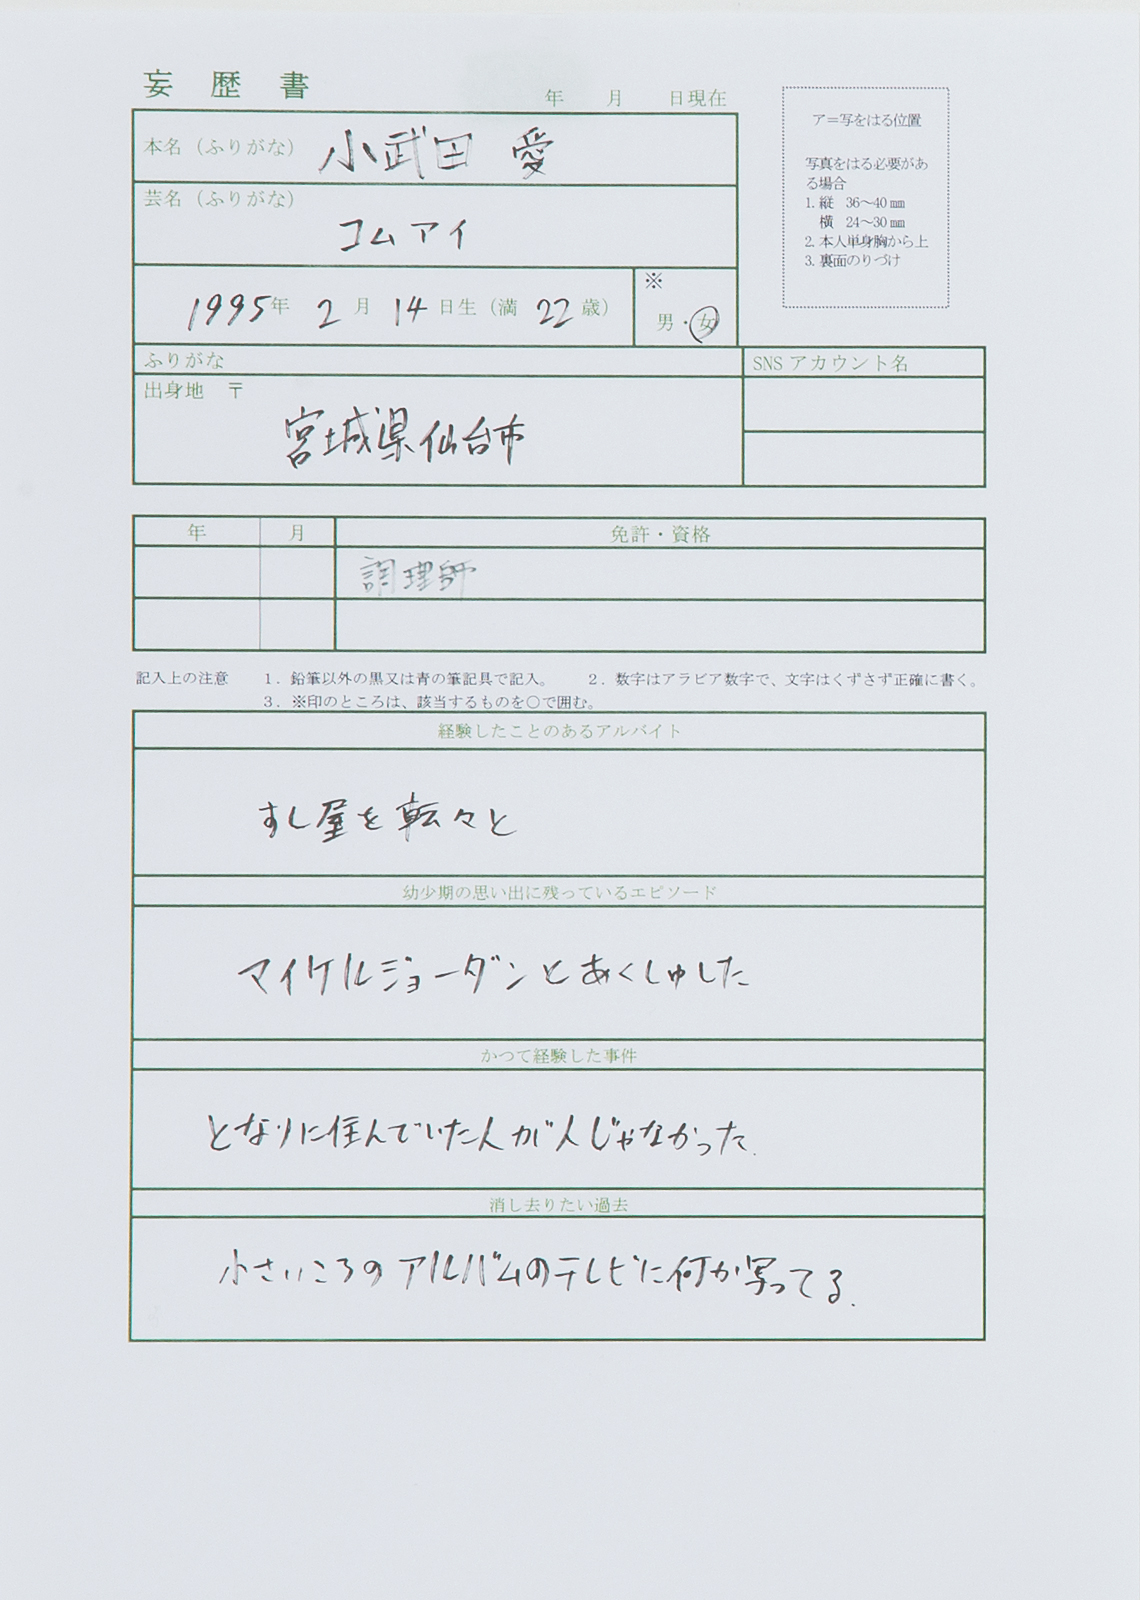 妄歴書
年 月 日現在
本名（ふりがな） 小武田 愛
芸名（ふりがな）
コムアイ
1995年 2月 14日生（満 22歳）
※
男・女
ア＝写をはる位置
写真をはる必要があ
る場合
1. 縦 36～40㎜
横 24～30㎜
2. 本人単身胸から上
3. 裏面のりづけ
ふりがな
SNS アカウント名
出身地 〒
宮城県仙台市
年 月 免許・資格
調理師
記入上の注意 1．鉛筆以外の黒又は青の筆記具で記入。 2．数字はアラビア数字で、文字はくずさず正確に書く。
3．※印のところは、該当するものを○で囲む。
経験したことのあるアルバイト
すし屋を転々と
幼少期の思い出に残っているエピソード
マイケルジョーダンとあくしゅした
かつて経験した事件
となりに住んでいた人が人じゃなかった.
消し去りたい過去
小さいころのアルバムのテレビに何か写ってる.